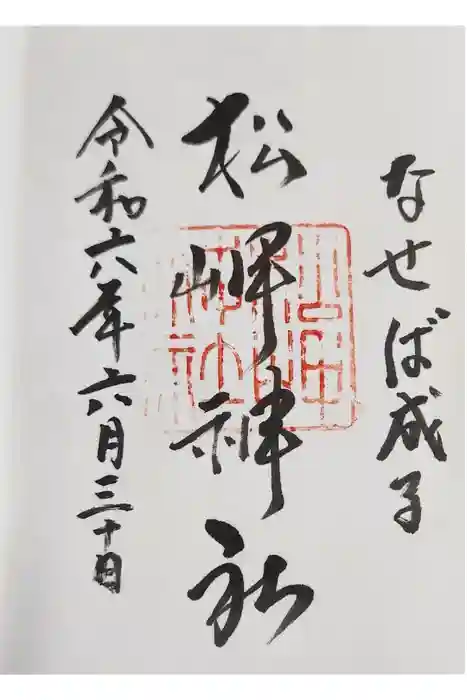 なせば成る
松岬神社
令和六年六月三十日